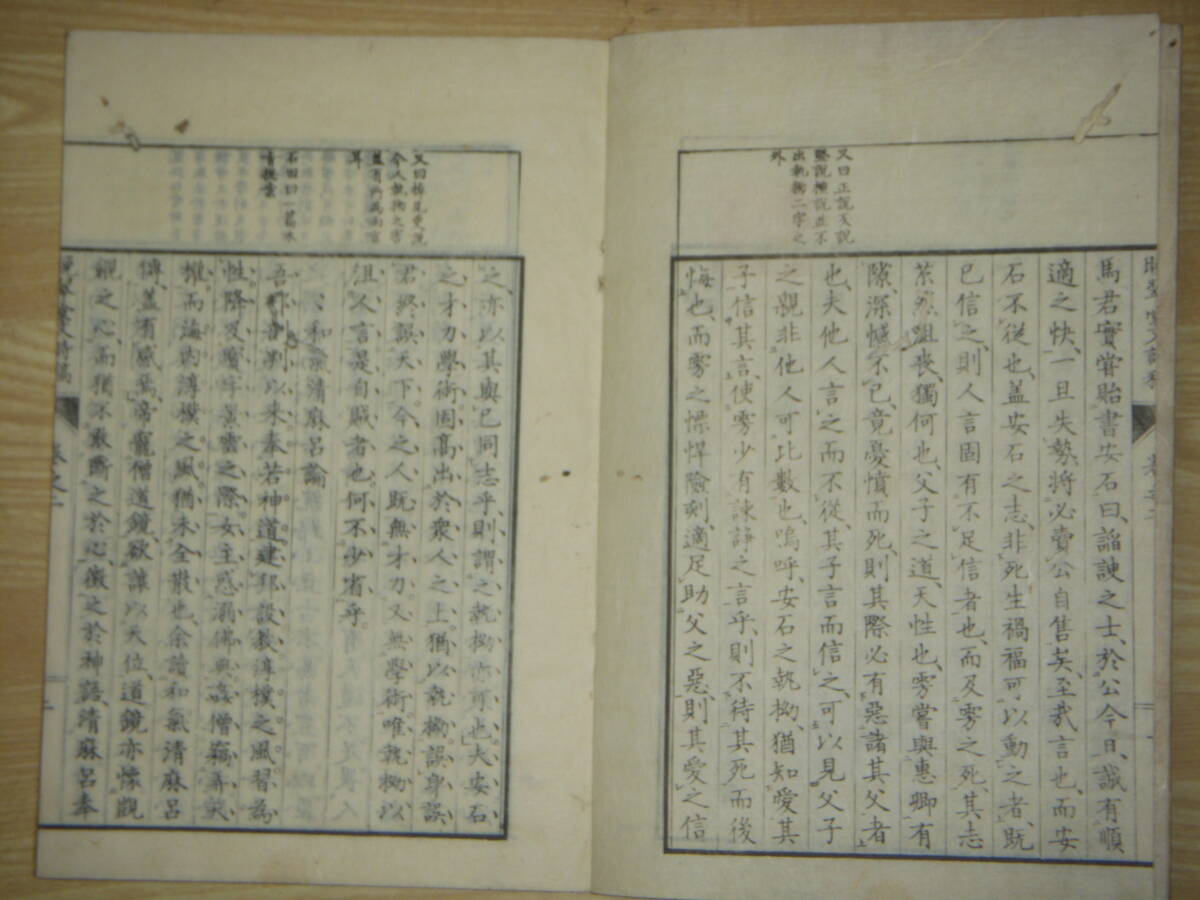 又曰正説反説
竪説横説並不
出執拗二字之
外
馬君實嘗貽書安石曰、諂諛之士、於公今日、誠有順
適之快、一旦失勢、將必賣公自售矣、至哉言也、而安
石不從也、蓋安石之志、非死生禍福可以動之者、既
已信之、則人言固有不足信者也、而及雱之死、其志
茶然沮喪、獨何也、父子之道、天性也、雱嘗與惠卿有
隙、深憾不已、竟憂憤而死、則其際必有惡諸其父者
也、夫他人言之而不從、其子言而信之、可以見父子
之親非他人可比數也、嗚呼、安石之執拗、猶知愛其
子信其言、使雱少有諫諍之言乎、則不待其死而後
悔也、而雱之慓悍險刻、適足助父之惡、則其愛之信
之、亦以其與己同志乎、則謂之執拗亦可也、夫安石
之才力學術、固高出於衆人之上、猶以執拗誤身、誤
君終誤天下、今之人既無才力、又無學術、唯執拗以
沮人言、是自賊者也、何不少省乎。
和氣清麻呂論
吾邦音判以來、奉若神道、建邦設教、淳樸之風、習為
性、降及寶字景雲之際、女主惑溺佛典、姦僧竊弄
權、而海内淳樸之風、猶未全散也、余讀和氣清麻呂
傳、蓋有感焉、帝寵僧道鏡、欲讓以天位、道鏡亦懷覬
覦之心、而猶不敢斷之於心、徵之於神語、清麻呂奉